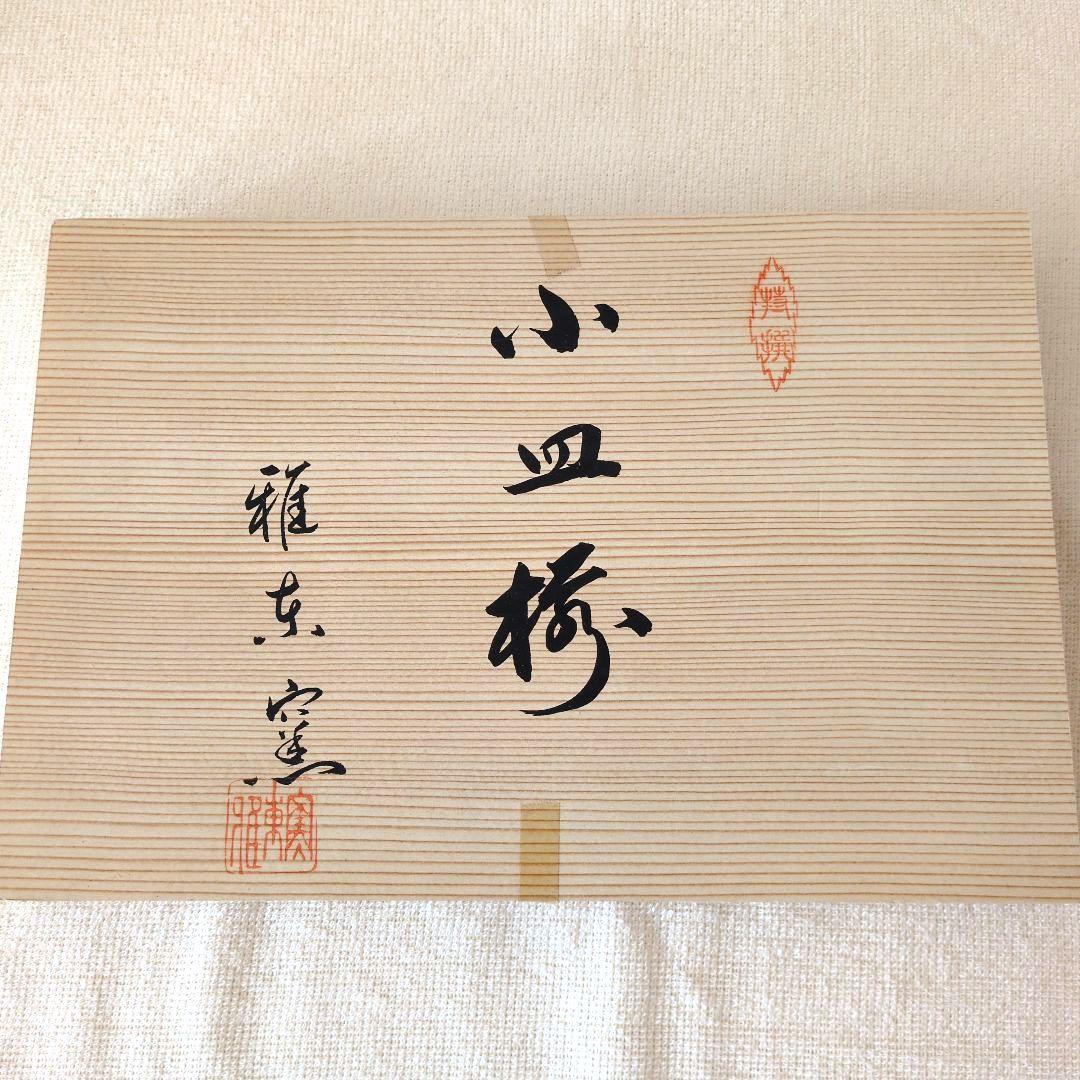 特撰
小皿揃
雅東窯
雅東窯